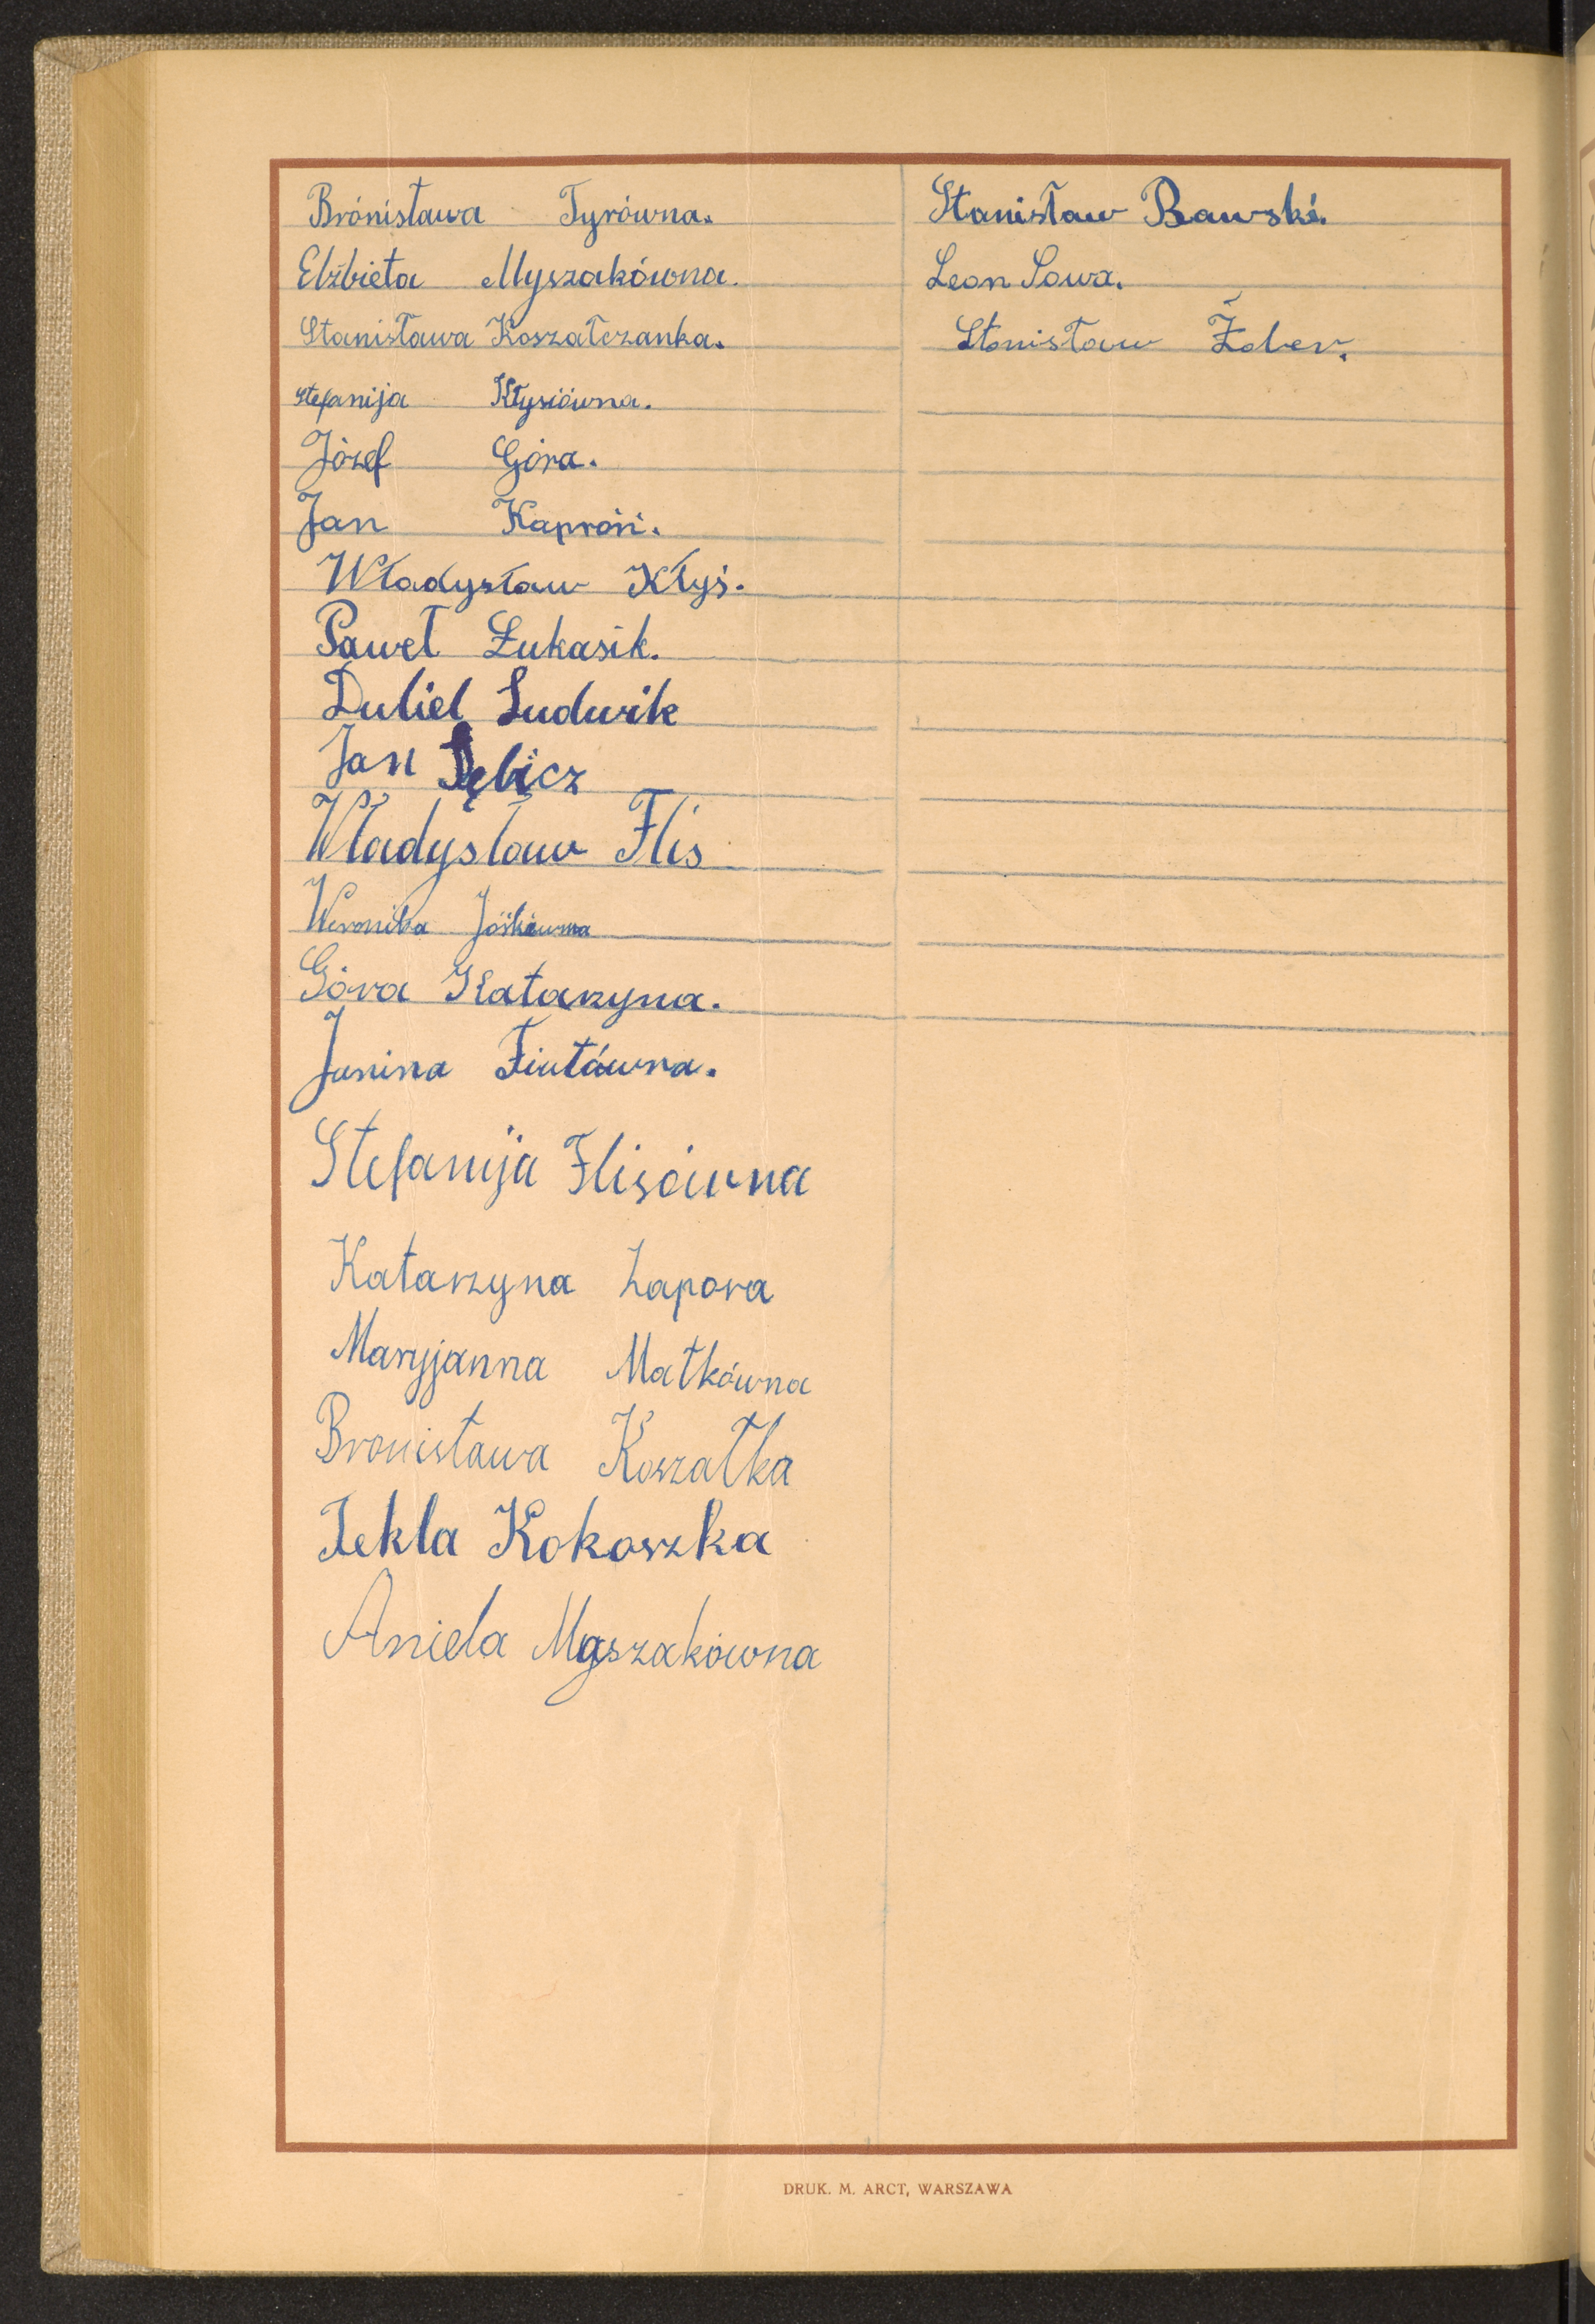 Brónisława Tyrówna.
Elżbieta Myszakówna.
Stanisława Koszałczanka.
Stefanija Kłysiówna.
Józef Góra.
Jan Kaproń.
Władysław Kłyś.
Paweł Łukasik.
Dubiel Ludwik
Jan Dębicz
Władysław Flis
Weronika Jośkówna
Góra Katarzyna.
Janina Fiutówna.
Stefanija Flisówna
Katarzyna Zapora
Maryjanna Matkówna
Bronisława Koszałka
Tekla Kokoszka
Aniela Myszakówna
Stanisław Rawski.
Leon Sowa.
Stanisław Żaber.
DRUK. M. ARCT, WARSZAWA